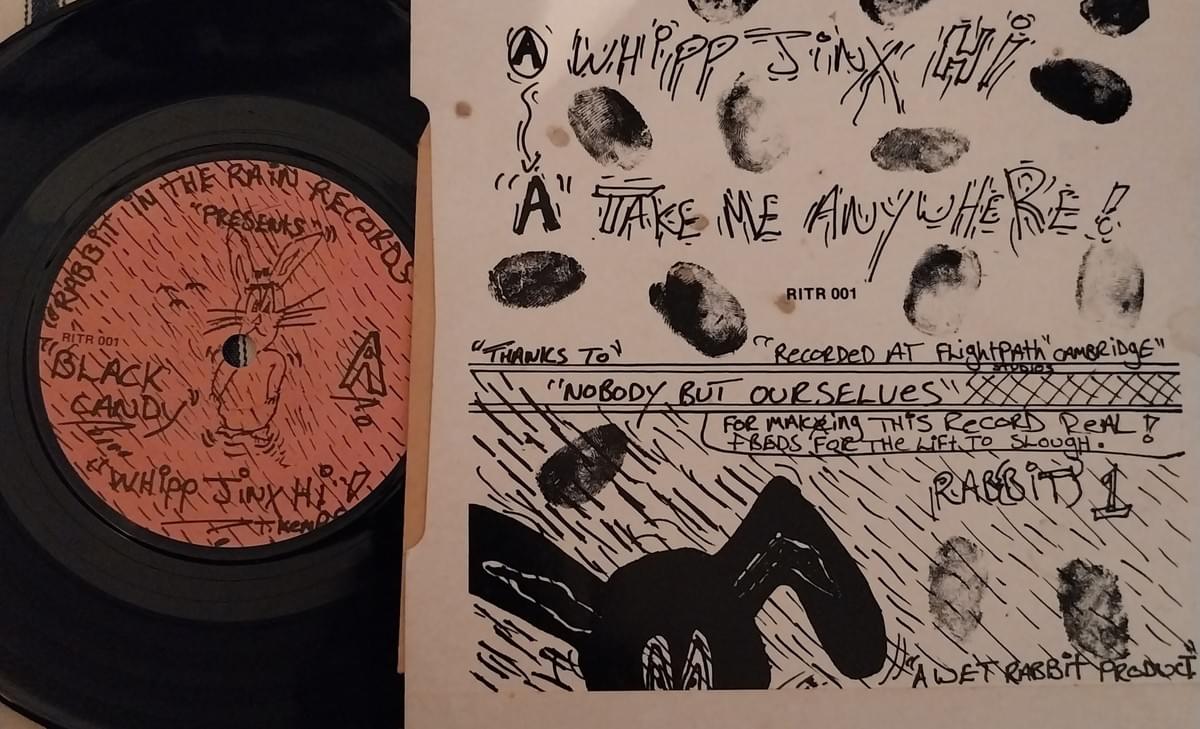 "RABBIT IN THE RAIN RECORDS
"PRESENTS"
RITR 001
"BLACK
CANDY"
A
"WHIPP JINX HI"!
T. KEMP
A WHIPP JINX HI
"A" TAKE ME ANYWHERE!
RITR 001
"THANKS TO" "RECORDED AT FLIGHTPATH" CAMBRIDGE"
STUDIOS
"NOBODY BUT OURSELVES"
FOR MAKING THIS RECORD REAL!
+ BEDS FOR THE LIFT TO SLOUGH.
RABBIT 1
"A WET RABBIT PRODUCT"